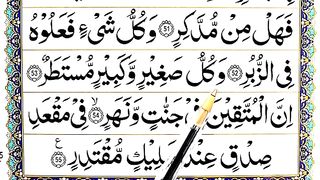 فَهَلْ مِنْ مُّدَّكِرٍ ۝٥١ وَكُلُّ شَيْءٍ فَعَلُوْهُ
فِى الزُّبُرِ ۝٥٢ وَكُلُّ صَغِيْرٍ وَّكَبِيْرٍ مُّسْتَطَرٌ ۝٥٣
اِنَّ الْمُتَّقِيْنَ فِيْ جَنّٰتٍ وَّنَهَرٍ ۝٥٤ فِيْ مَقْعَدِ
صِدْقٍ عِنْدَ مَلِيْكٍ مُّقْتَدِرٍ ۝٥٥